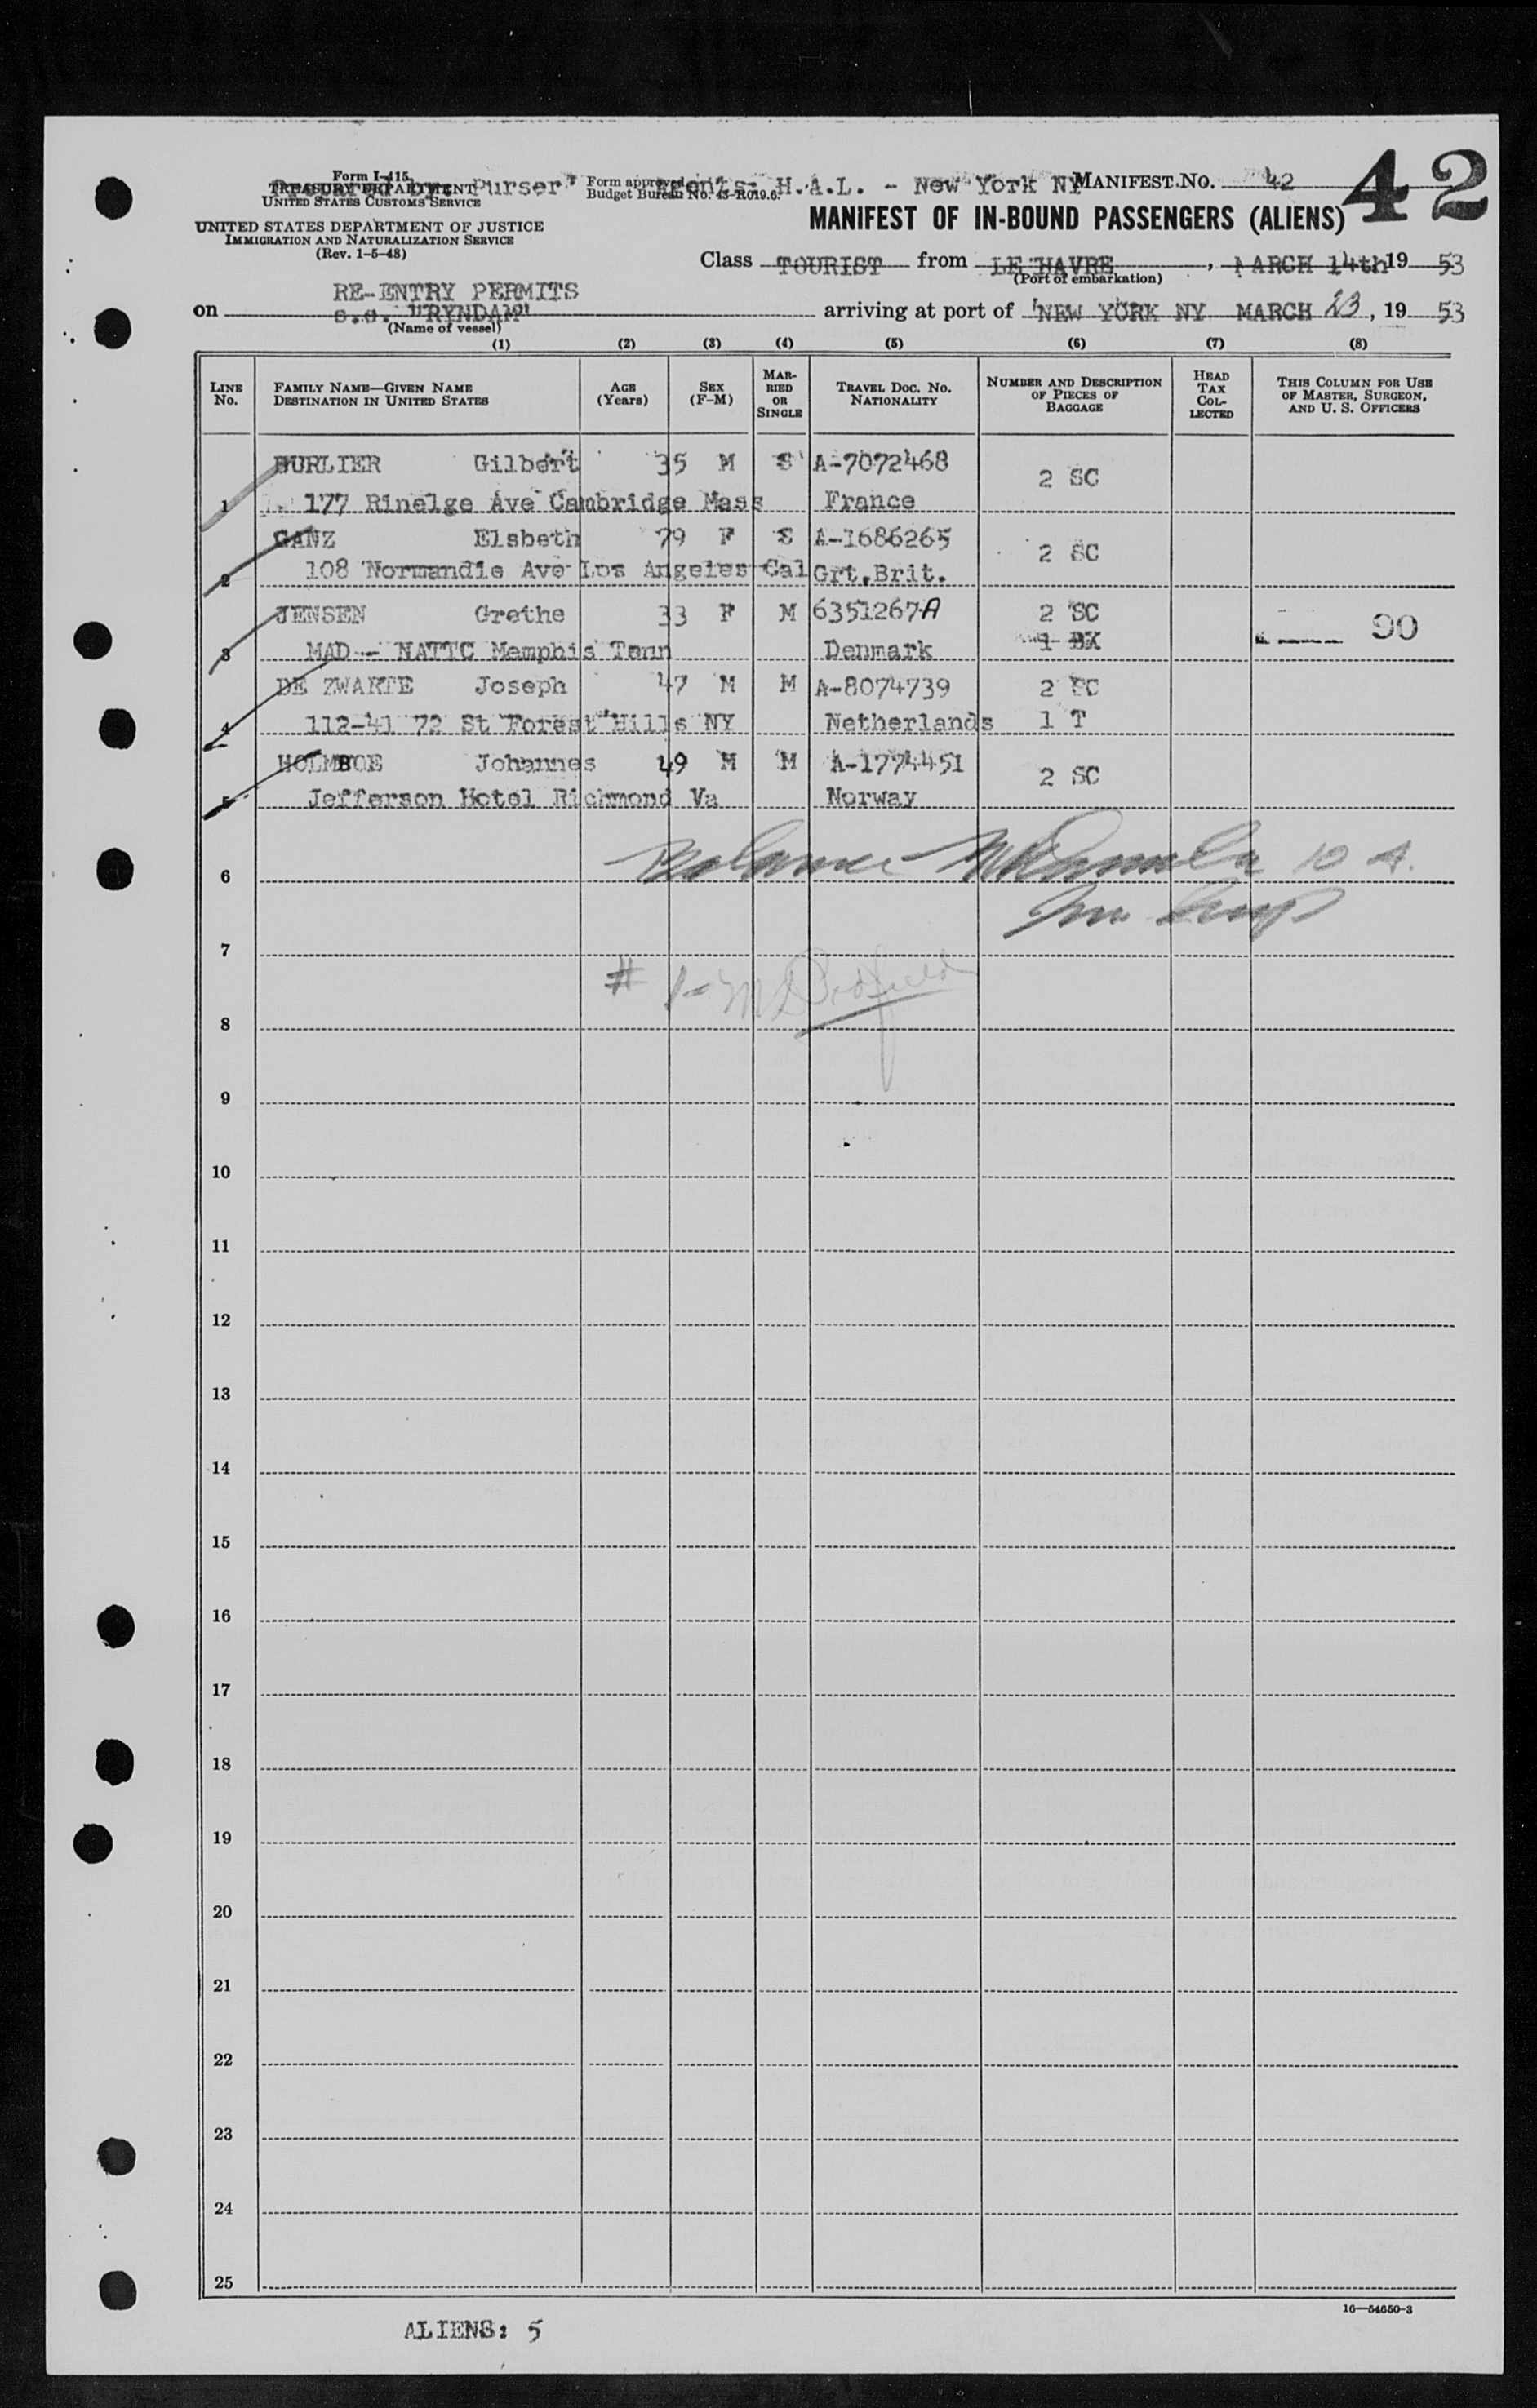 Form I-415
TREASURY DEPARTMENT
UNITED STATES CUSTOMS SERVICE
Purser
Form approved
Budget Bureau No. 43-R019.6.
Agents: H.A.L. - New York NY
MANIFEST NO. 42
42
UNITED STATES DEPARTMENT OF JUSTICE
IMMIGRATION AND NATURALIZATION SERVICE
(Rev. 1-5-48)
MANIFEST OF IN-BOUND PASSENGERS (ALIENS)
Class TOURIST from LE HAVRE, MARCH 14th 19 53
(Port of embarkation)
RE-ENTRY PERMITS
on s.s. "RYNDAM" arriving at port of NEW YORK NY MARCH 23, 19 53
(Name of vessel)
(1) (2) (3) (4) (5) (6) (7) (8)
LINE NO. FAMILY NAME—GIVEN NAME DESTINATION IN UNITED STATES AGE (Years) SEX (F-M) MARRIED OR SINGLE TRAVEL DOC. NO. NATIONALITY NUMBER AND DESCRIPTION OF PIECES OF BAGGAGE HEAD TAX COLLECTED THIS COLUMN FOR USE OF MASTER, SURGEON, AND U. S. OFFICERS
BURLIER Gilbert 35 M S A-7072468 2 SC
1 177 Rinelge Ave Cambridge Mass France
GANZ Elsbeth 79 F S A-1686265 2 SC
2 108 Normandie Ave Los Angeles Cal Grt.Brit.
JENSEN Grethe 33 F M 6351267-A 2 SC
1 BX 90
3 MAD - NATTC Memphis Tenn Denmark
DE ZWARTE Joseph 47 M M A-8074739 2 SC
4 112-41 72 St Forest Hills NY Netherlands 1 T
HOLMBOE Johannes 49 M M A-1774451 2 SC
5 Jefferson Hotel Richmond Va Norway
6
7
# 1-
8
9
10
11
12
13
14
15
16
17
18
19
20
21
22
23
24
25
16—54650-3
ALIENS: 5